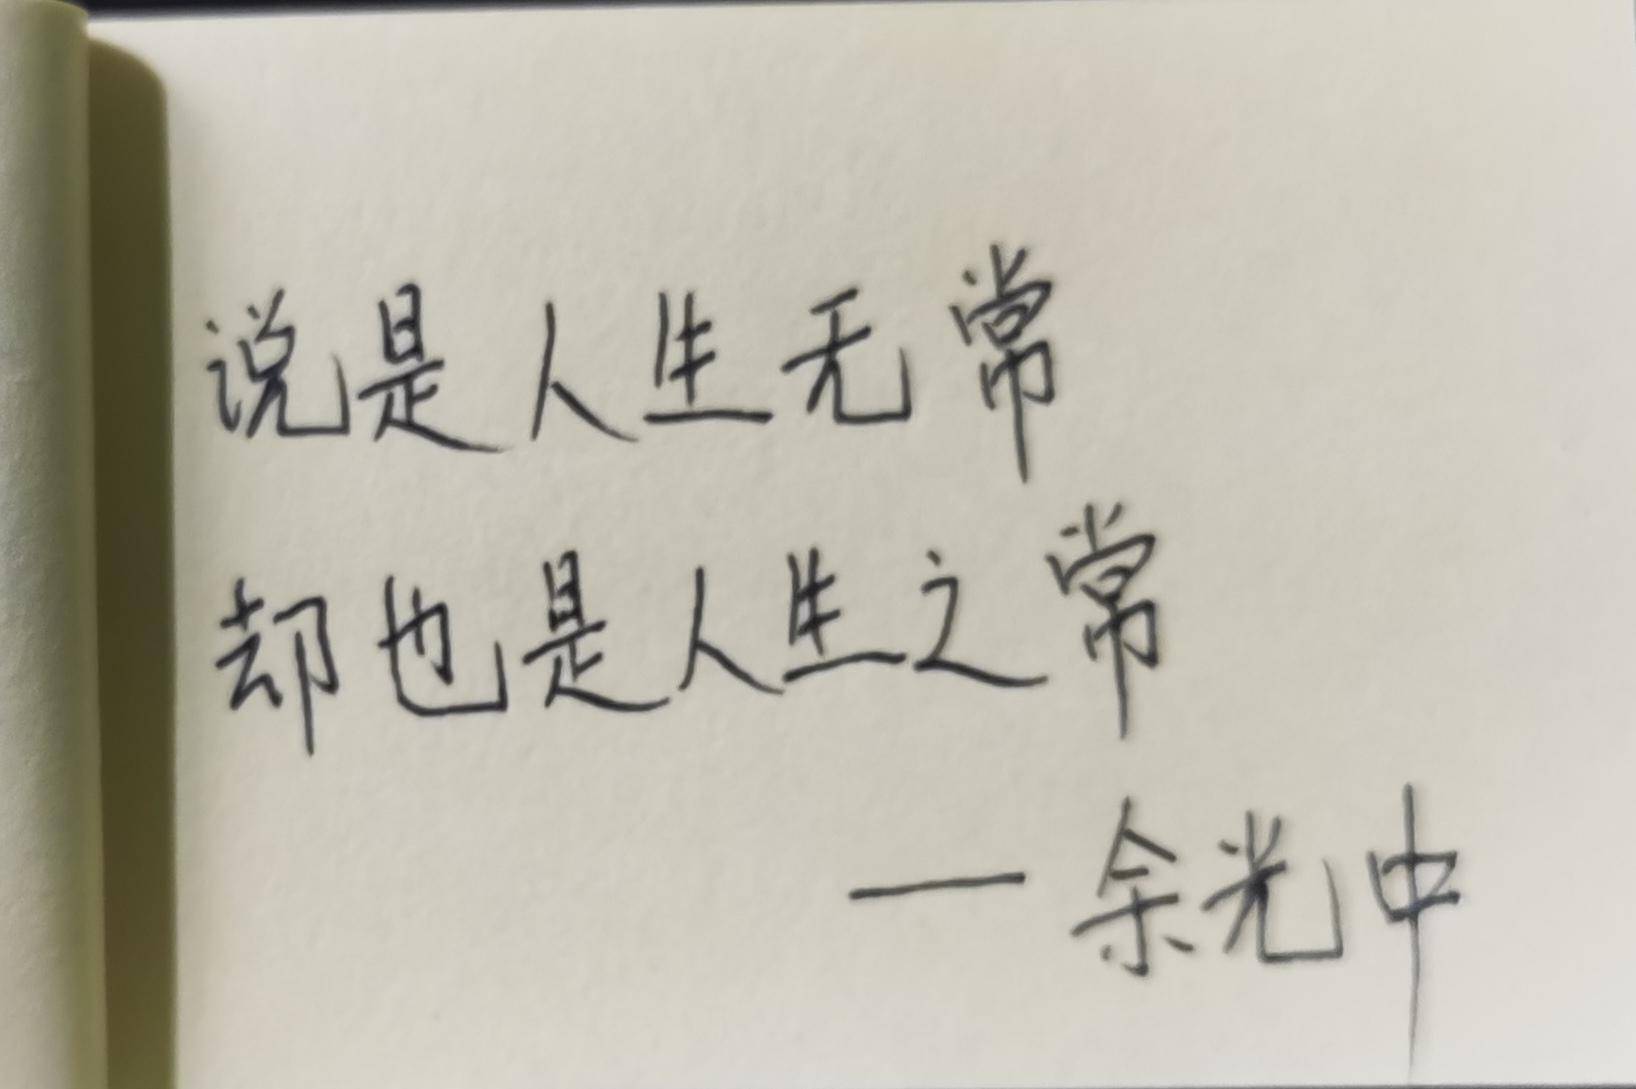 说是人生无常
却也是人生之常
—余光中